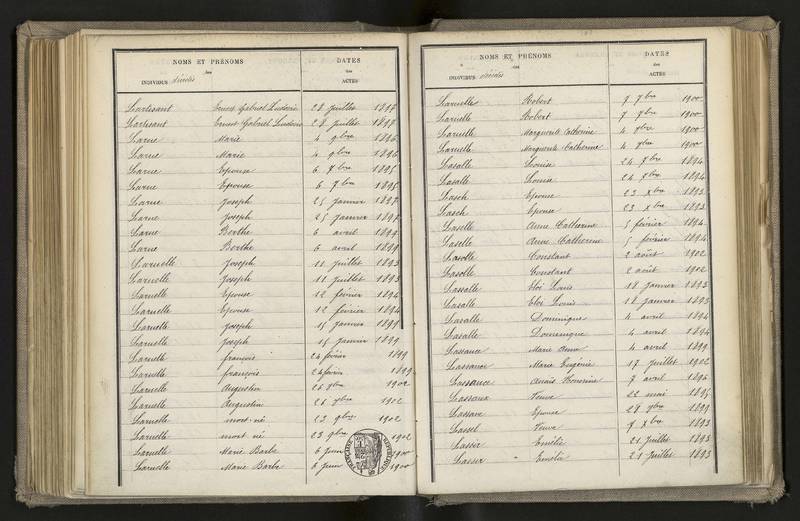 NOMS ET PRÉNOMS
des
INDIVIDUS décédés
DATES
des
ACTES
Lartisant Ernest Gabriel Ludovic 28 juillet 1897
Lartisant Ernest Gabriel Ludovic 28 juillet 1897
Larue Marie 4 9bre 1896
Larue Marie 4 9bre 1896
Larue Epouse 6 7bre 1895
Larue Epouse 6 7bre 1895
Larue Joseph 25 janvier 1897
Larue Joseph 25 janvier 1897
Larue Berthe 6 avril 1899
Larue Berthe 6 avril 1899
Laruelle Joseph 11 juillet 1893
Laruelle Joseph 11 juillet 1893
Laruelle Epouse 12 février 1894
Laruelle Epouse 12 février 1894
Laruelle Joseph 15 janvier 1899
Laruelle Joseph 15 janvier 1899
Laruelle françois 24 février 1899
Laruelle françois 24 1899
Laruelle Augustin 26 1902
Laruelle Augustin 26 1902
Laruelle mort né 23 9bre 1902
Laruelle mort né 23 9bre 1902
Laruelle Marie Barbe 6 juin 1900
Laruelle Marie Barbe 6 juin 1900
NOMS ET PRÉNOMS
des
INDIVIDUS décédés
DATES
des
ACTES
Laruelle Robert 7 7bre 1900
Laruelle Robert 7 7bre 1900
Laruelle Marguerite Catherine 4 1900
Laruelle Marguerite Catherine 4 1900
Lasalle Louise 24 7bre 1894
Lasalle Louise 24 7bre 1894
Lasch Epouse 23 xbre 1893
Lasch Epouse 23 xbre 1893
Laselle Anne Catherine 5 février 1894
Laselle Anne Catherine 5 février 1894
Lasolle Constant 2 août 1902
Lasolle Constant 2 août 1902
Lassalle Eloi Louis 18 janvier 1895
Lasalle Eloi Louis 18 janvier 1895
Lasalle Dominique 4 avril 1894
Lasalle Dominique 4 avril 1894
Lassance Marie Anna 4 avril 1899
Lassance Marie Eugénie 17 juillet 1902
Lassance Anaïs 7 avril 1896
Lassaux Veuve 22 mai 1895
Lassaux Epouse 28 1899
Lassel Veuve 7 xbre 1893
Lassir Emélie 21 juillet 1893
Lassir Emélie 21 juillet 1893